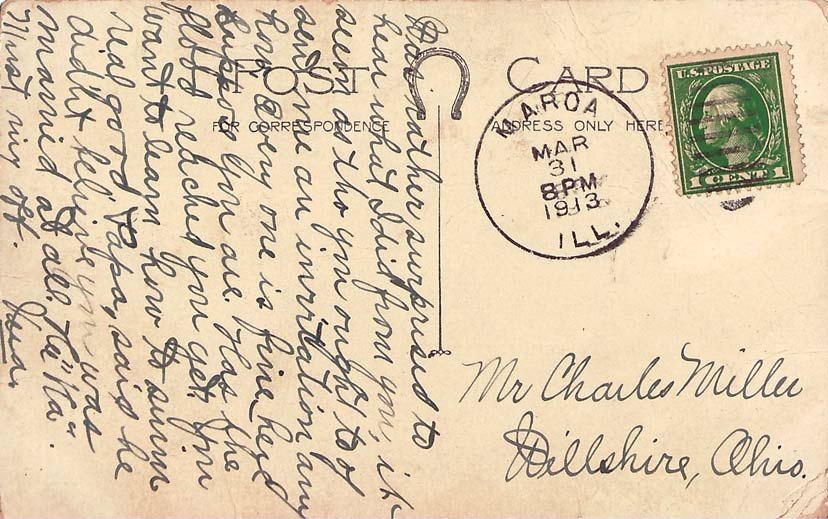 POST CARD
FOR CORRESPONDENCE
ADDRESS ONLY HERE
U.S. POSTAGE
1 CENT 1
MAROA
MAR
31
8 PM
1913
ILL.
Mr Charles Miller
Willshire, Ohio.
Was rather surprised to
hear what I did from you, it
seems as tho you ought to of
sent me an invitation any
how. Every one is fine, he
suppose you are. Has the
flood reached you yet. You
want to learn how to swim
real good. Papa, said he
didn't believe you was
married at all. "Ha" "Ha".
Must ring off.